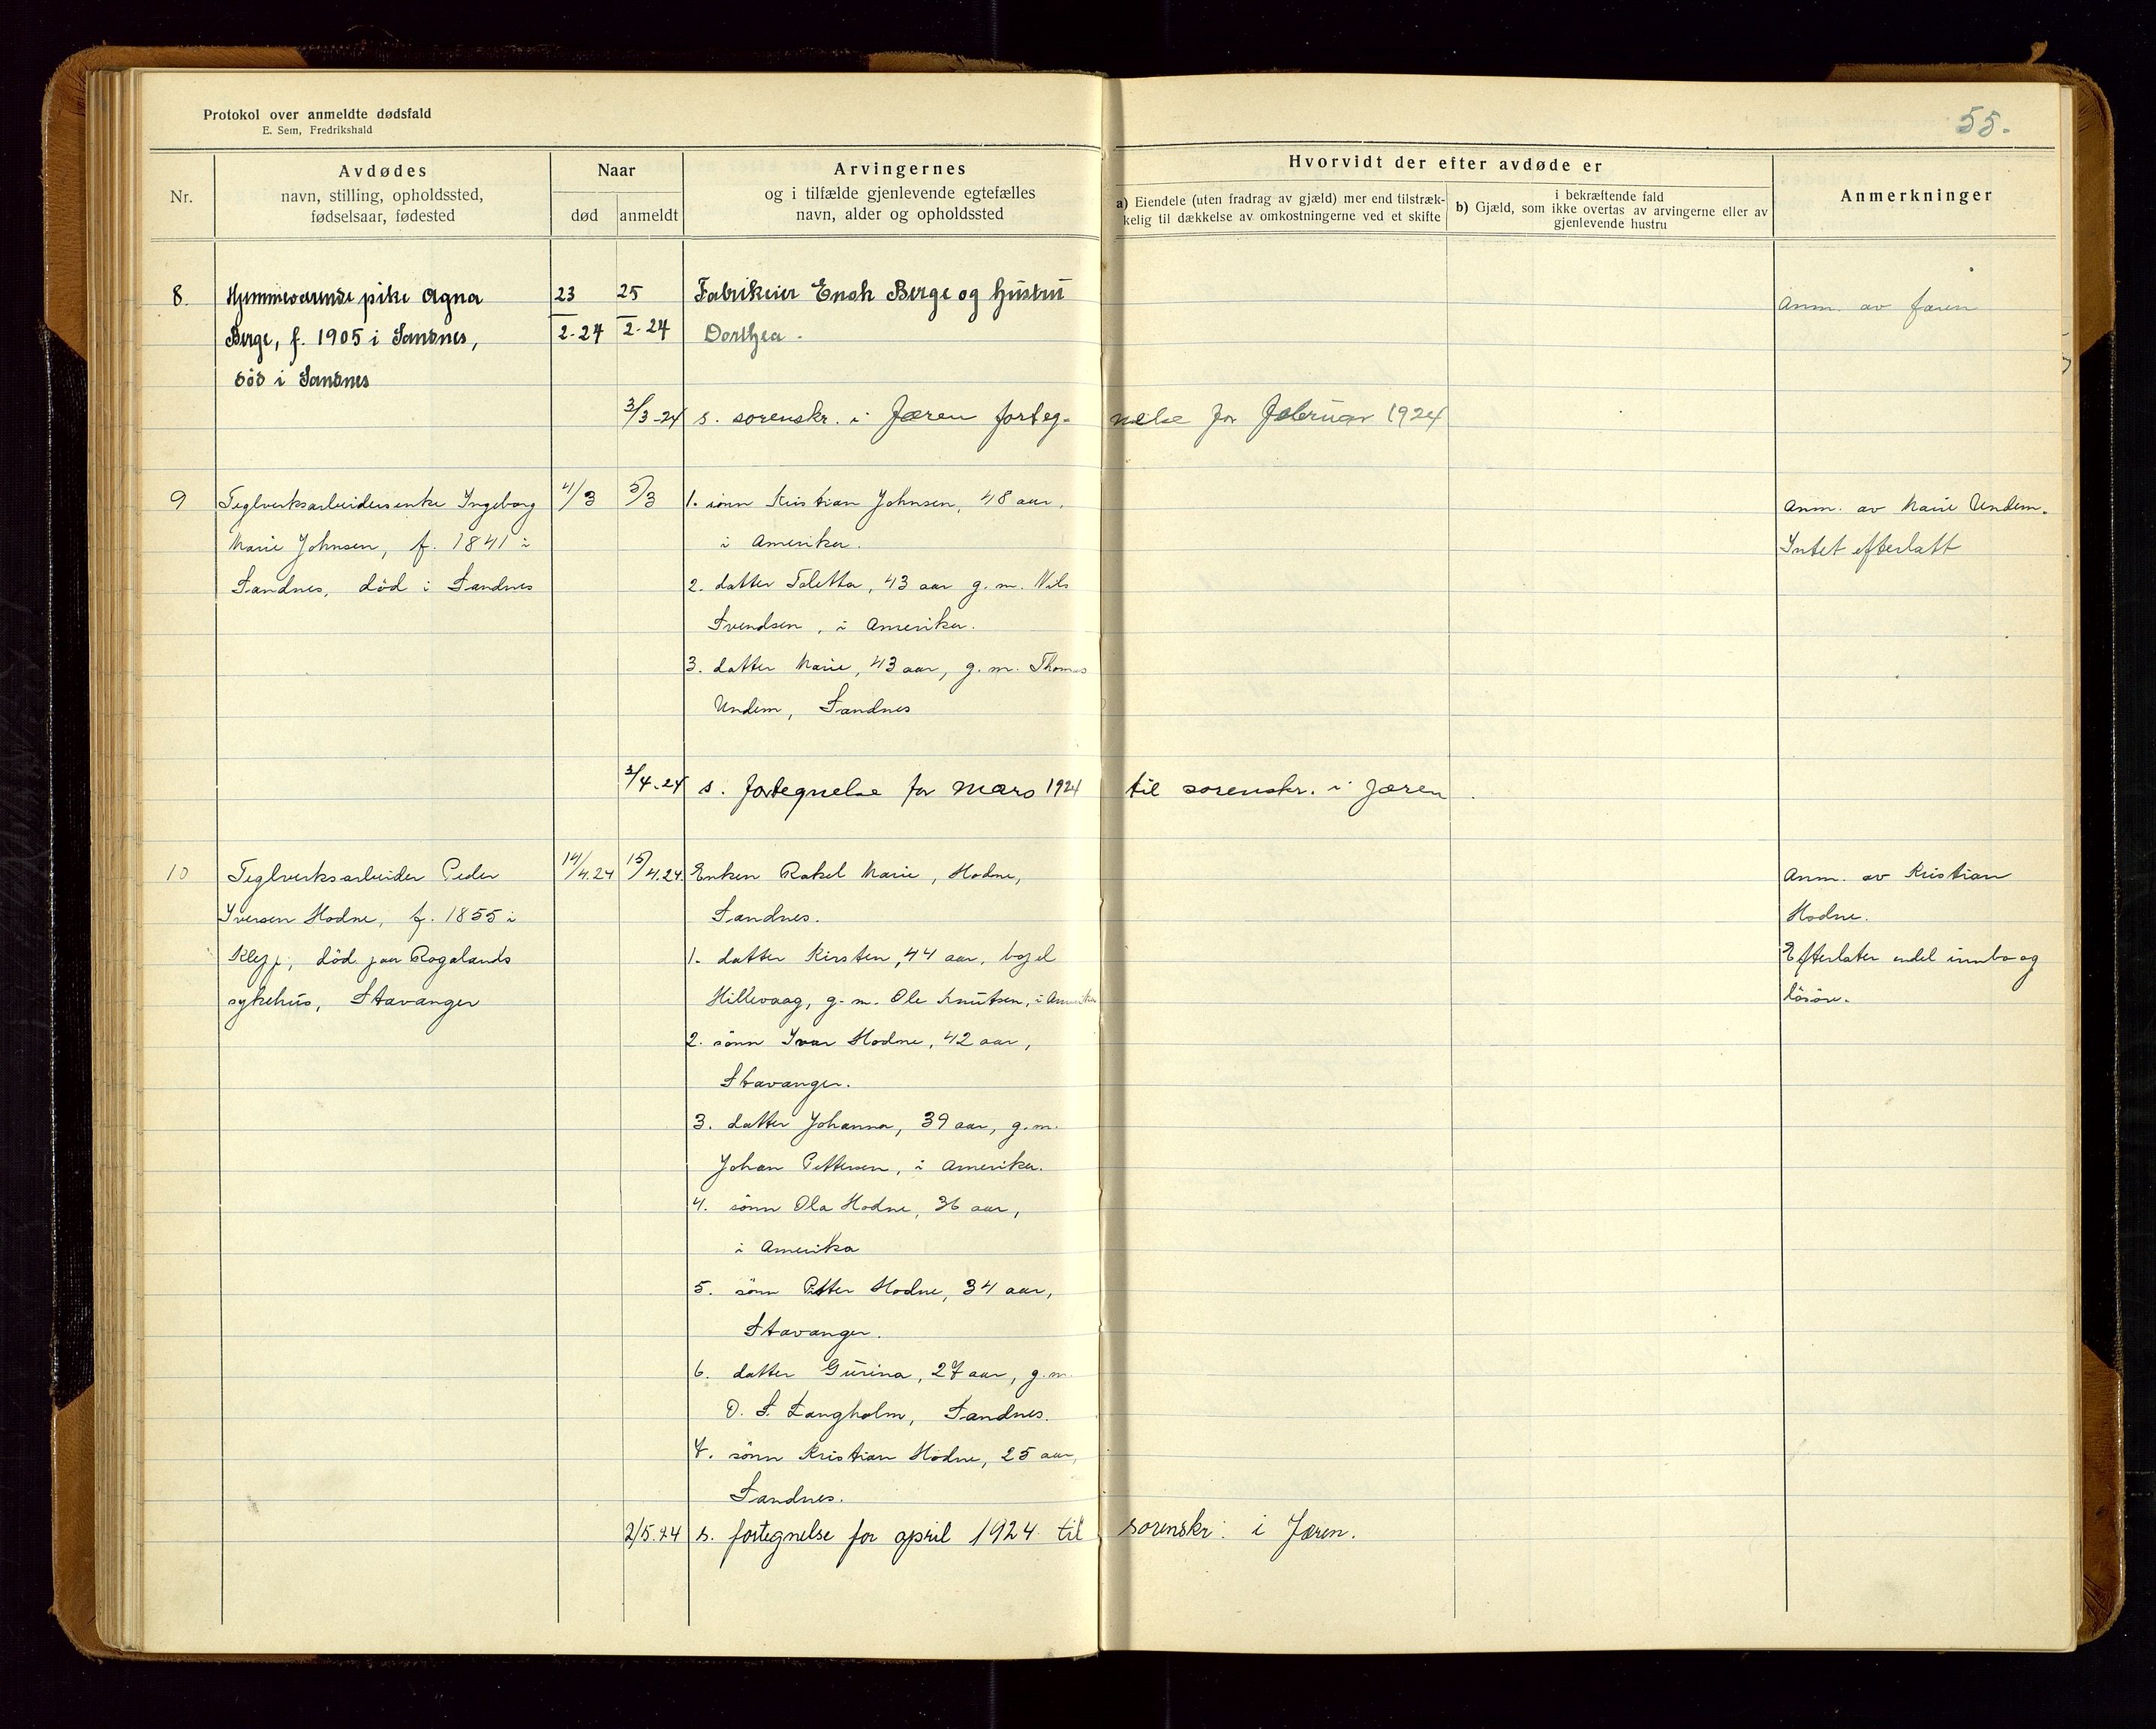 Protokol over anmeldte dødsfald
E. Sem, Fredrikshald
55.
Nr.
Avdødes
navn, stilling, opholdssted,
fødselsaar, fødested
Naar
død
anmeldt
Arvingernes
og i tilfælde gjenlevende egtefælles
navn, alder og opholdssted
Hvorvidt der efter avdøde er
a) Eiendele (uten fradrag av gjæld) mer end tilstræk-
kelig til dækkelse av omkostningerne ved et skifte
i bekræftende fald
b) Gjæld, som ikke overtas av arvingerne eller av
gjenlevende hustru
Anmerkninger
8. Hjemmeværende pike Agna 23 25 Fabrikeier Enok Berge og hustru Anm. av faren
Berge, f. 1905 i Sandnes, 2-24 2-24 Dorthea.
död i Sandnes
3/3-24 s. sorenskr. i Jæren forteg- nelse for februar 1924
9 Teglverksarbeidersenke Ingeborg 4/3 5/3 1. sönn Kristian Johnsen, 48 aar, Anm. av Marie Undem.
Marie Johnsen, f. 1841 i i Amerika. Intet efterlatt
Sandnes, död i Sandnes 2. datter Toletta, 43 aar g. m. Nils
Svendsen, i Amerika.
3. datter Marie, 43 aar, g. m. Thomas
Undem, Sandnes
3/4-24 s. fortegnelse for mars 1924 til sorenskr. i Jæren
10 Teglverksarbeider Peder 14/4.24 15/4.24. Enken Rakel Marie, Hodne, Anm. av Kristian
Iversen Hodne, f. 1855 i Sandnes. Hodne.
Klepp, död paa Rogalands 1. datter Kirsten, 44 aar, bopel Efterlater endel innbo og
sykehus, Stavanger Hillevaag, g. m. Ole Knutsen, i Amerika lösöre.
2. sönn Ivar Hodne, 42 aar,
Stavanger.
3. datter Johanna, 39 aar, g. m.
Johan Pettersen, i Amerika.
4. sönn Ola Hodne, 36 aar,
i Amerika
5. sönn Petter Hodne, 34 aar,
Stavanger.
6. datter Gurina, 27 aar, g. m.
O. S. Langholm, Sandnes.
7. sönn Kristian Hodne, 25 aar,
Sandnes.
2/5.24 s. fortegnelse for april 1924 til sorenskr. i Jæren.